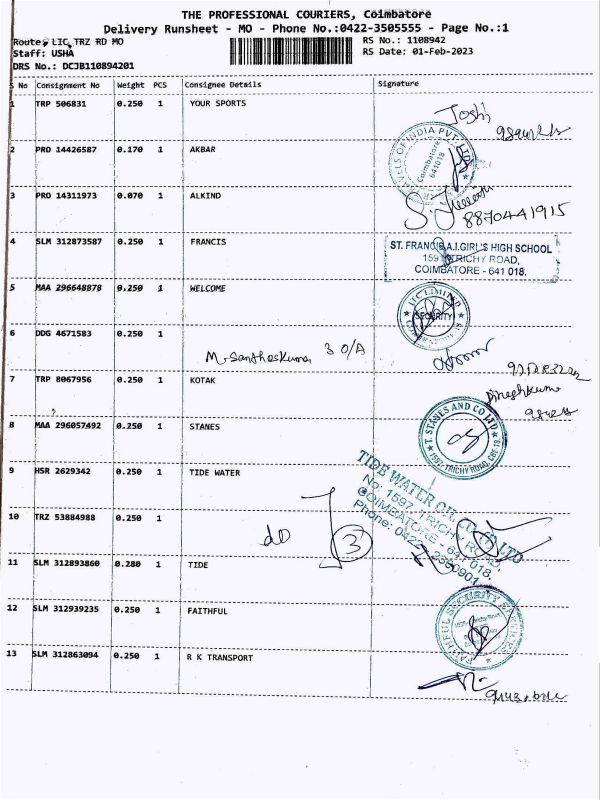 THE PROFESSIONAL COURIERS, Coimbatore
Delivery Runsheet - MO - Phone No.:0422-3505555 - Page No.:1
Route: LIC, TRZ RD MO RS No.: 1108942
Staff: USHA RS Date: 01-Feb-2023
DRS No.: DCJB110894201
S No Consignment No Weight PCS Consignee Details Signature
1 TRP 506831 0.250 1 YOUR SPORTS
Joshi
2 PRO 14426587 0.170 1 AKBAR
TRAVELS OF INDIA PVT. LTD
Coimbatore
641018
3 PRO 14311973 0.070 1 ALKIND
8870441915
4 SLM 312873587 0.250 1 FRANCIS
ST. FRANCIS A.I.GIRL'S HIGH SCHOOL
159 TRICHY ROAD,
COIMBATORE - 641 018.
5 MAA 296648878 0.250 1 WELCOME
LIMITED
SECURITY
6 DDG 4671583 0.250 1
M. Santhoskumar 3 O/A
7 TRP 8067956 0.250 1 KOTAK
Dineshkumar
8 MAA 296057492 0.250 1 STANES
T. STANES AND CO LTD
1597, TRICHY ROAD, CBE-18.
9 HSR 2629342 0.250 1 TIDE WATER
TIDE WATER OIL CO. LTD
No: 1597, TRICHY ROAD,
COIMBATORE - 641 018.
Phone: 0422
10 TRZ 53884988 0.250 1
do 3
11 SLM 312893860 0.280 1 TIDE
12 SLM 312939235 0.250 1 FAITHFUL
FAITHFUL SECURITY
13 SLM 312863094 0.250 1 R K TRANSPORT